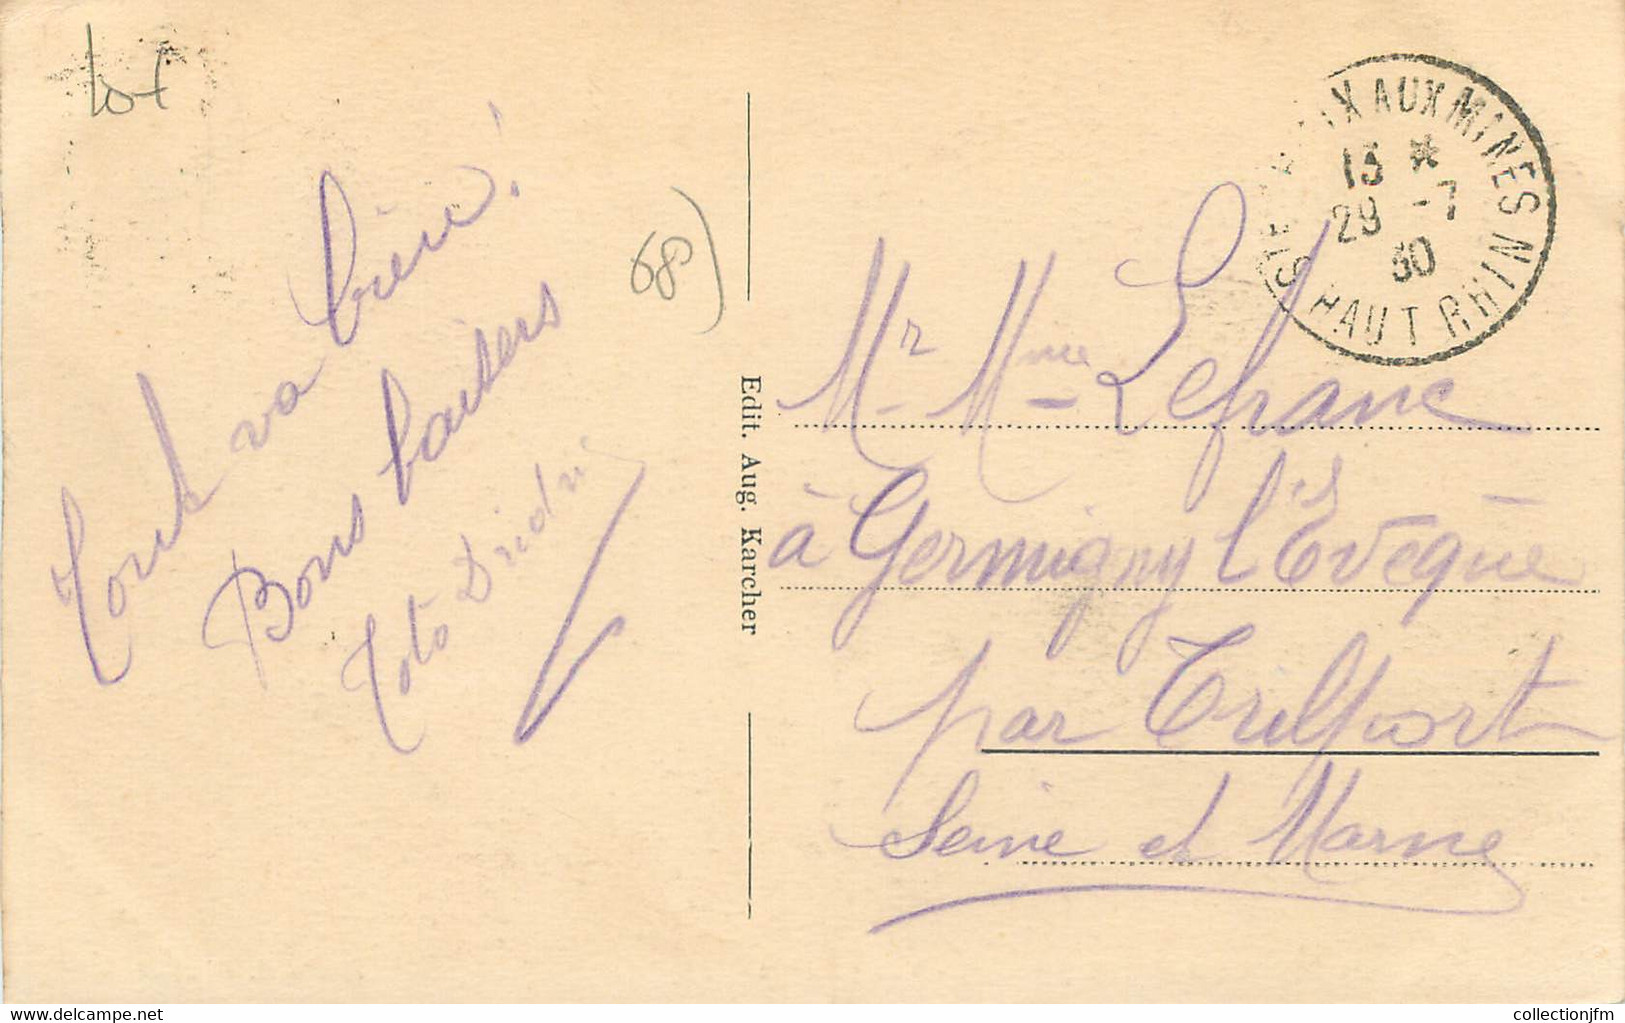 lot
Tout va bien!
Bons baisers
Toto Dridri
68)
Edit. Aug. Karcher
STE MARIE AUX MINES HAUT RHIN
13 *
29 -7
30
Mr Mme Lefranc
à Germigny l'Evêque
par Trilport
Seine et Marne
www.delcampe.net
collectionjfm